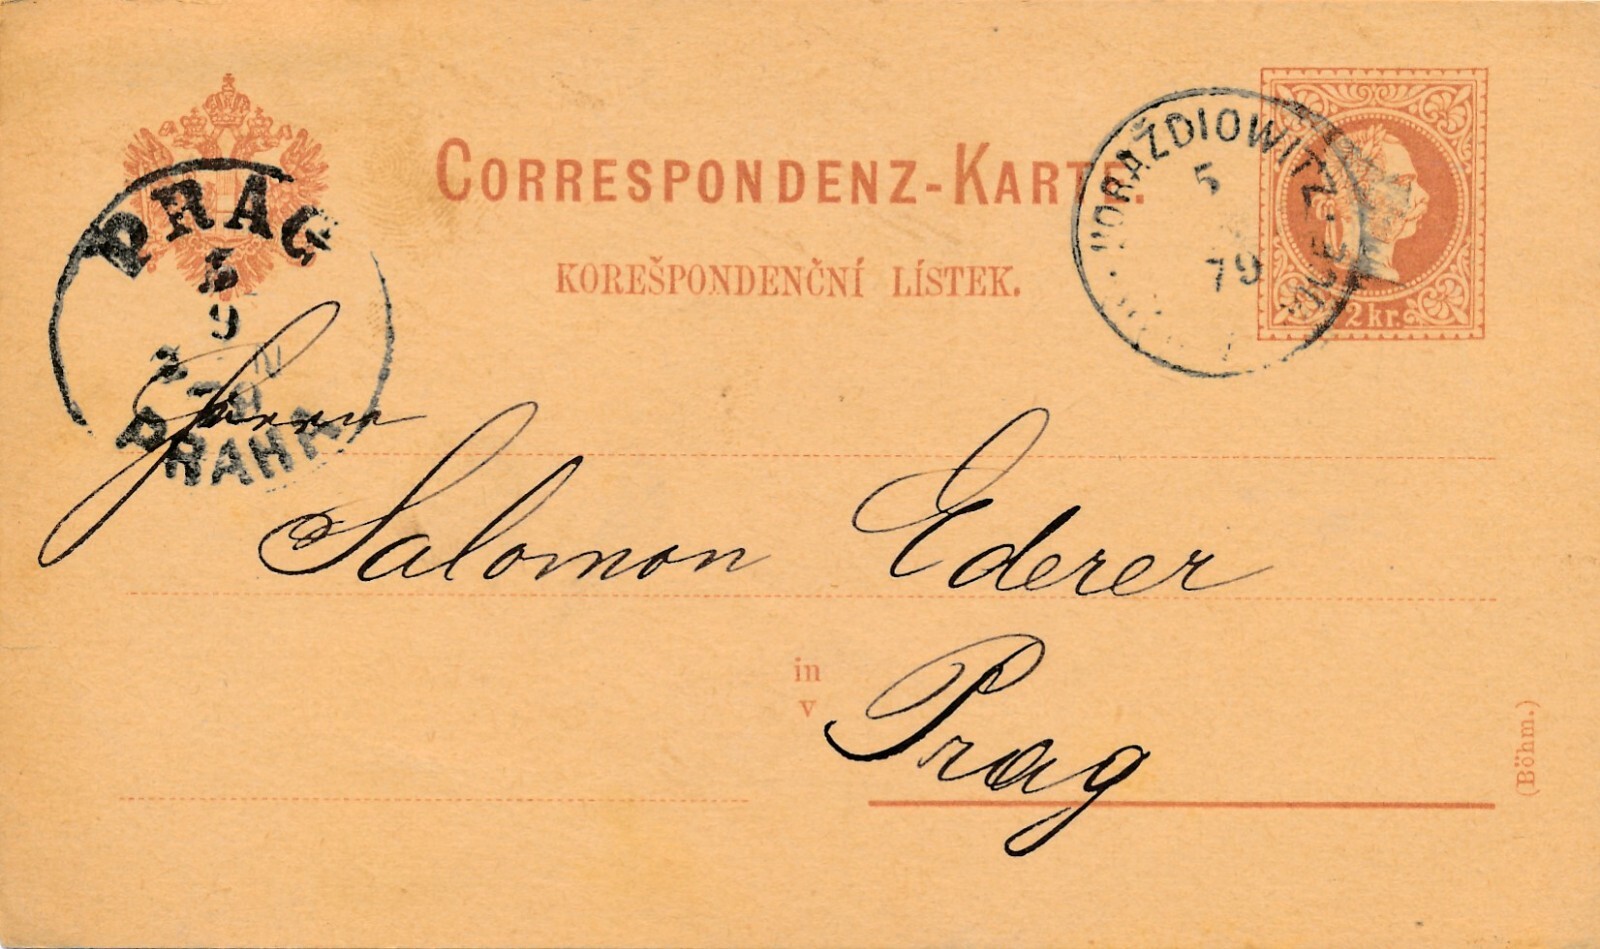 CORRESPONDENZ-KARTE.
KOREŠPONDENČNÍ LÍSTEK.
HORAŽDIOWITZ
5
79
2 kr.
PRAG
5
9
79
PRAHA
Herrn
Salomon Ederer
in
v
Prag
(Böhm.)